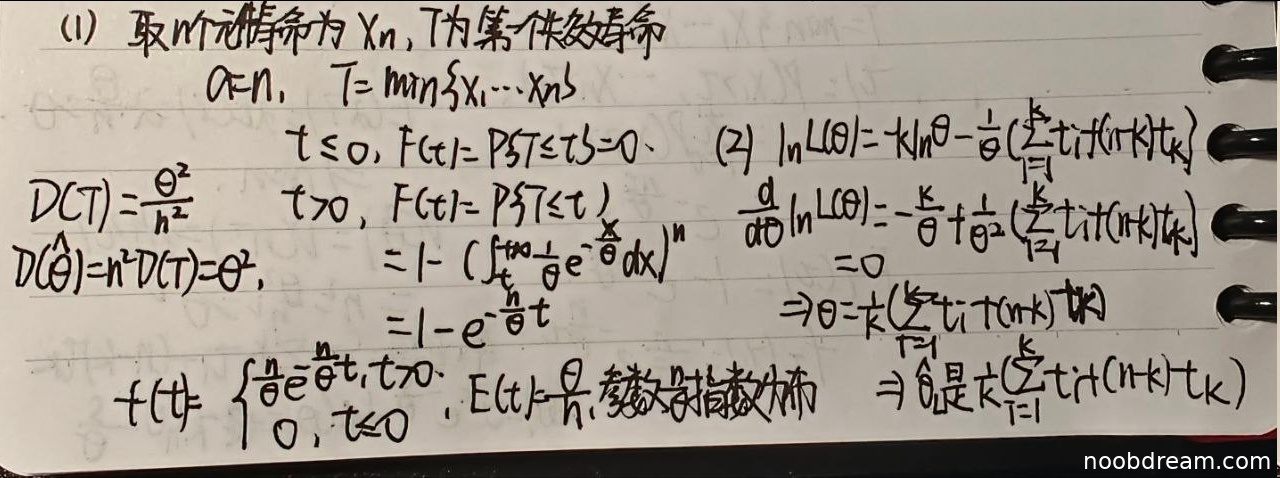 (1) 取n个元件寿命为 Xn, T为第一个失效寿命
a=n, T=min{X1…Xn}
t≤0, F(t)=P{T≤t}=0.
t>0, F(t)=P{T≤t}
=1-(∫_t^{+∞} 1/θ e^{-x/θ} dx)^n
=1-e^{-n/θ t}
f(t)= { n/θ e^{-n/θ t}, t>0.
0, t≤0
, E(t)=θ/n, 参数为n/θ指数分布
D(T)=θ²/n²
D(θ̂)=n²D(T)=θ²,
(2) lnL(θ)=-klnθ-1/θ(∑_{i=1}^k ti+(n-k)tk]
d/dθ lnL(θ)=-k/θ+1/θ²(∑_{i=1}^k ti+(n-k)tk]
=0
⇒θ=1/k(∑_{i=1}^k ti+(n-k)tk)
⇒θ̂是1/k(∑_{i=1}^k ti+(n-k)tk)
noobdream.com